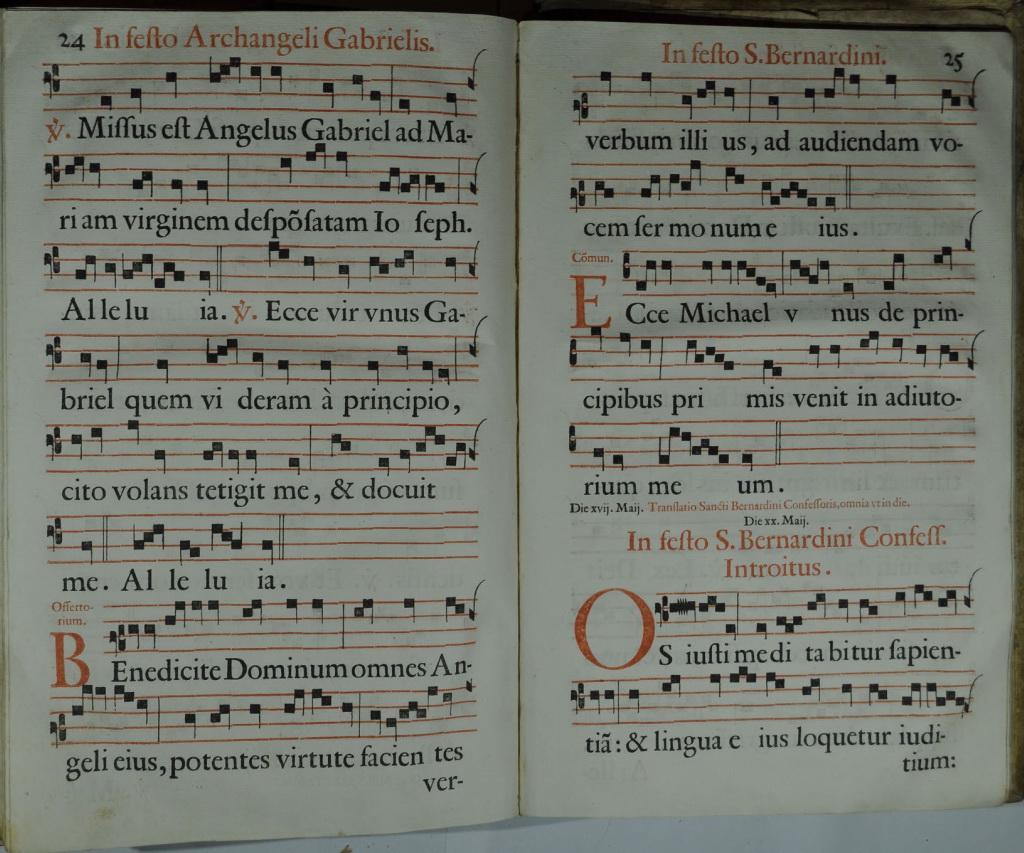 24 In feſto Archangeli Gabrielis.
℣. Miſſus eſt Angelus Gabriel ad Ma-
ri am virginem deſpõſatam Io ſeph.
Al le lu ia. ℣. Ecce vir vnus Ga-
briel quem vi deram à principio,
cito volans tetigit me, & docuit
me. Al le lu ia.
Offerto-
rium.
BEnedicite Dominum omnes An-
geli eius, potentes virtute facien tes
ver-
In feſto S. Bernardini. 25
verbum illi us, ad audiendam vo-
cem ſer mo num e ius.
Cõmun.
ECce Michael v nus de prin-
cipibus pri mis venit in adiuto-
rium me um.
Die xvij. Maij. Tranſlatio Sancti Bernardini Confeſſoris, omnia vt in die.
Die xx. Maij.
In feſto S. Bernardini Confeſſ.
Introitus.
OS iuſti me di ta bitur ſapien-
tiã: & lingua e ius loquetur iudi-
tium: